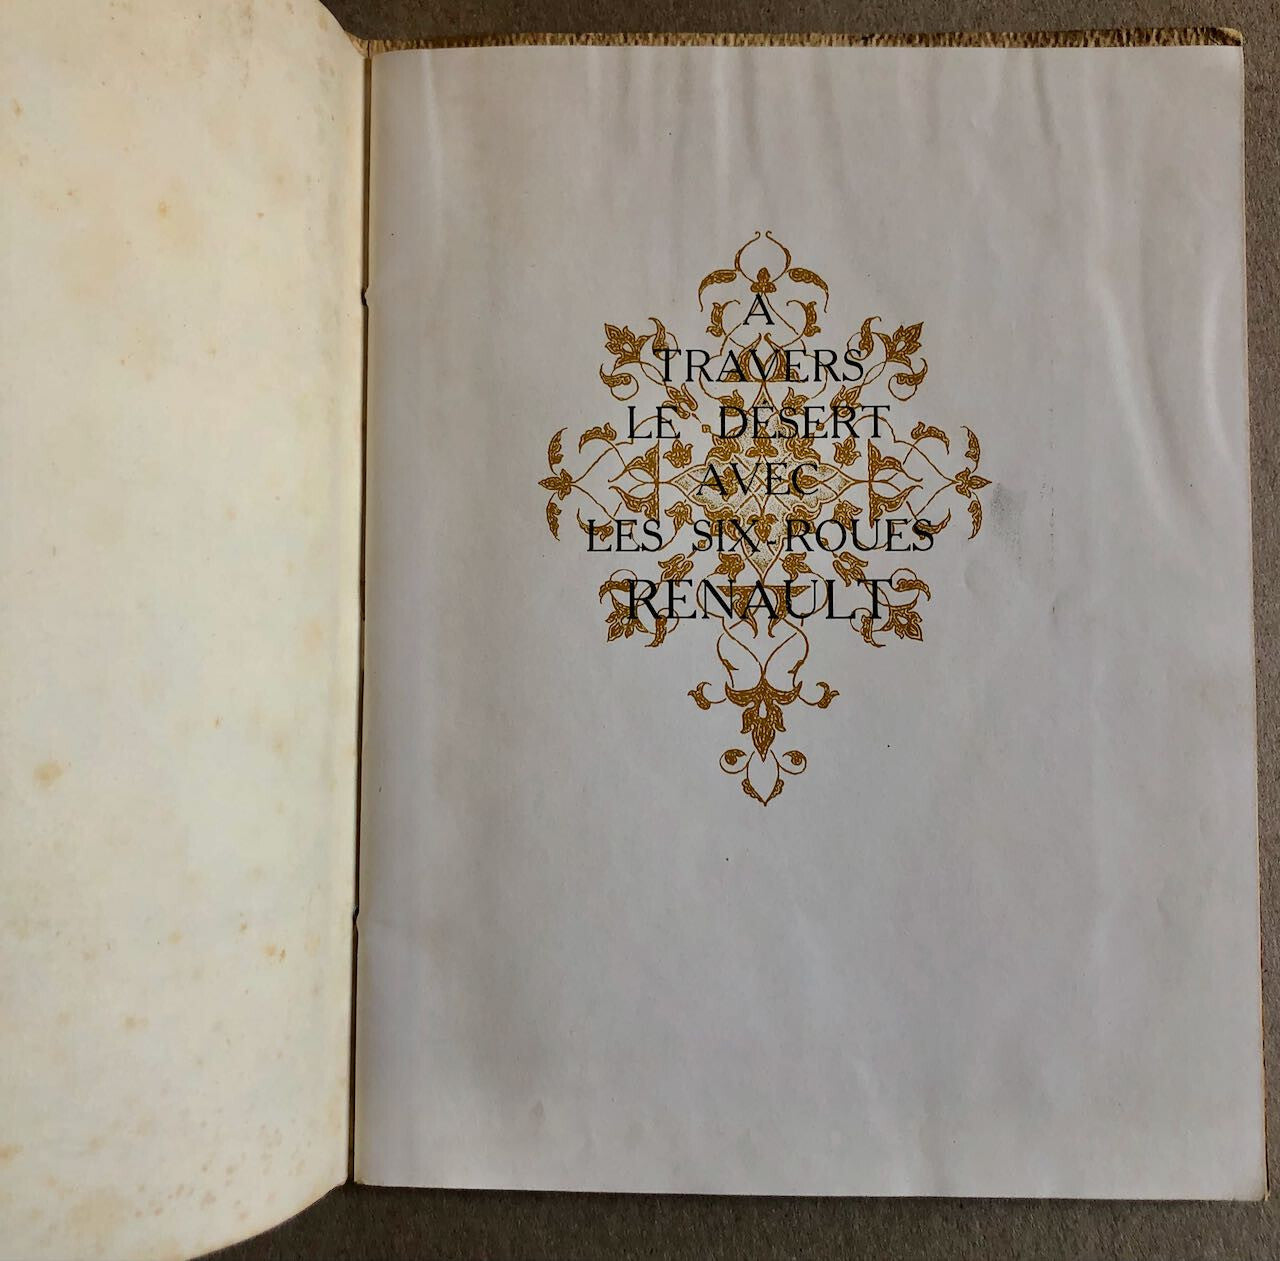 A
TRAVERS
LE DÉSERT
AVEC
LES SIX-ROUES
RENAULT